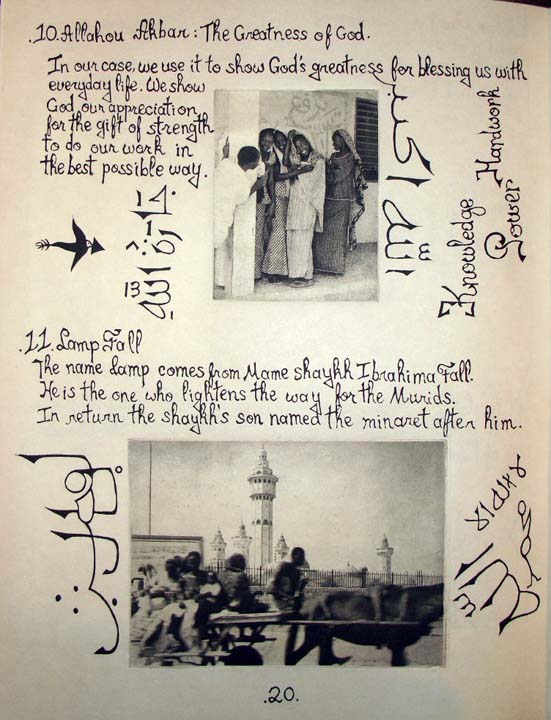 .10. Allahou Akbar : The Greatness of God.
In our case, we use it to show God's greatness for blessing us with
everyday life. We show
God our appreciation
for the gift of strength
to do our work in
the best possible way.
الله اكبر
Knowledge
Power
Handwork
.11. Lamp Fall
The name Lamp comes from Mame shaykh Ibrahima Fall.
He is the one who lightens the way for the Murids.
In return the shaykh's son named the minaret after him.
.20.